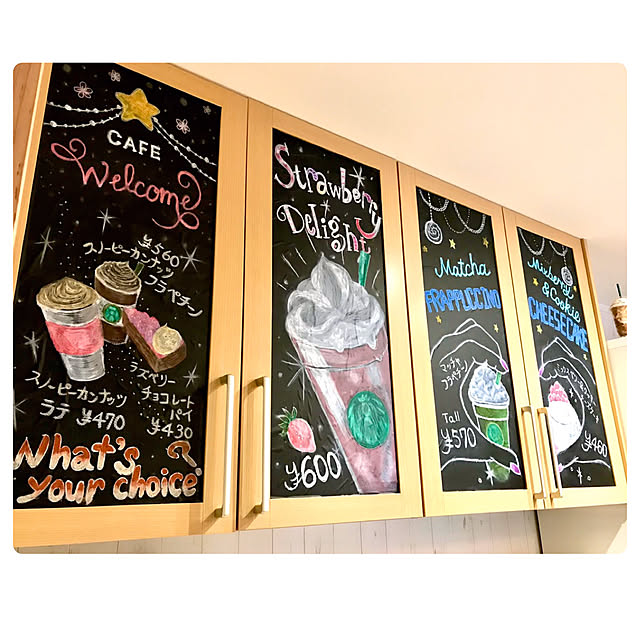 CAFE
Welcome
¥560
スノーピーカンナッツ
フラペチーノ
ラズベリー
チョコレート
パイ
¥430
スノーピーカンナッツ
ラテ ¥470
What's
your choice?
Strawberry
Delight
¥600
Matcha
FRAPPUCCINO
マッチャ
フラペチーノ
Tall
¥570
Mixberry
& Cookie
CHEESECAKE
¥460